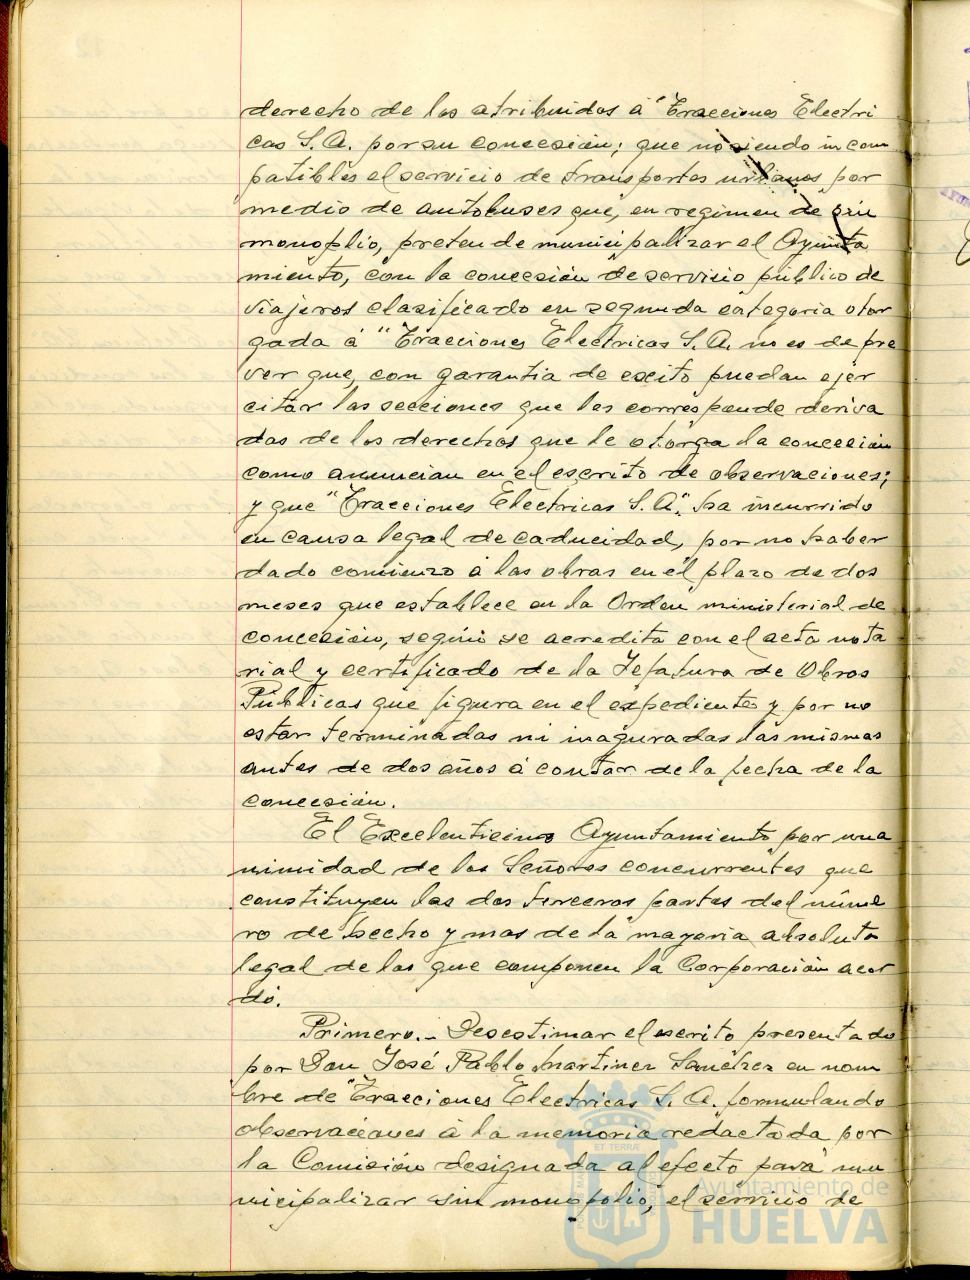 derecho de los atribuidos á "Tracciones Electri
cas S.A. por su concesión; que no siendo incom
patibles el servicio de transportes urbanos por
medio de autobuses que, en regimen de sin
monoplio, pretende municipalizar el Ayunta
miento, con la concesión de servicio público de
viajeros clasificado en segunda categoria otor
gada á "Tracciones Electricas S.A. no es de pre
ver que, con garantia de exito puedan ejer
citar las secciones que les corresponde deriva
das de los derechos que le otorga la concesión
como anuncian en el escrito de observaciones;
y que "Tracciones Electricas S.A." ha incurrido
en causa legal de caducidad, por no haber
dado comienzo á las obras en el plazo de dos
meses que establece en la Orden ministerial de
concesión, según se acredita con el acta nota
rial y certificado de la Jefatura de Obras
Publicas que figura en el expediente y por no
estar terminadas ni inaguradas las mismas
antes de dos años á contar de la fecha de la
concesión.
El Excelenticimo Ayuntamiento por una
nimidad de los Señores concurrentes que
constituyen las dos terceros partes del núme
ro de hecho y mas de la mayoria absoluta
legal de los que componen la Corporación acor
dó.
Primero.- Desestimar el escrito presentado
por Don José Pablo Martinez Sanchez en nom
bre de "Tracciones Electricas S. A. formulando
observaciones á la memoria redactada por
la Comisión designada al efecto para mu
nicipalizar sin monopolio, el servicio de
ET TERRÆ
Ayuntamiento de
HUELVA